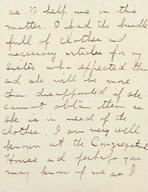 as to help me in this
matter. I had the bundle
full of clothes and
necessary articles for my
sister who expected them
and she will be more
than disappointed if she
cannot obtain them as
she is in need of the
clothes. I am very well
known at the Congregational
House and perhaps you
may know of me as I